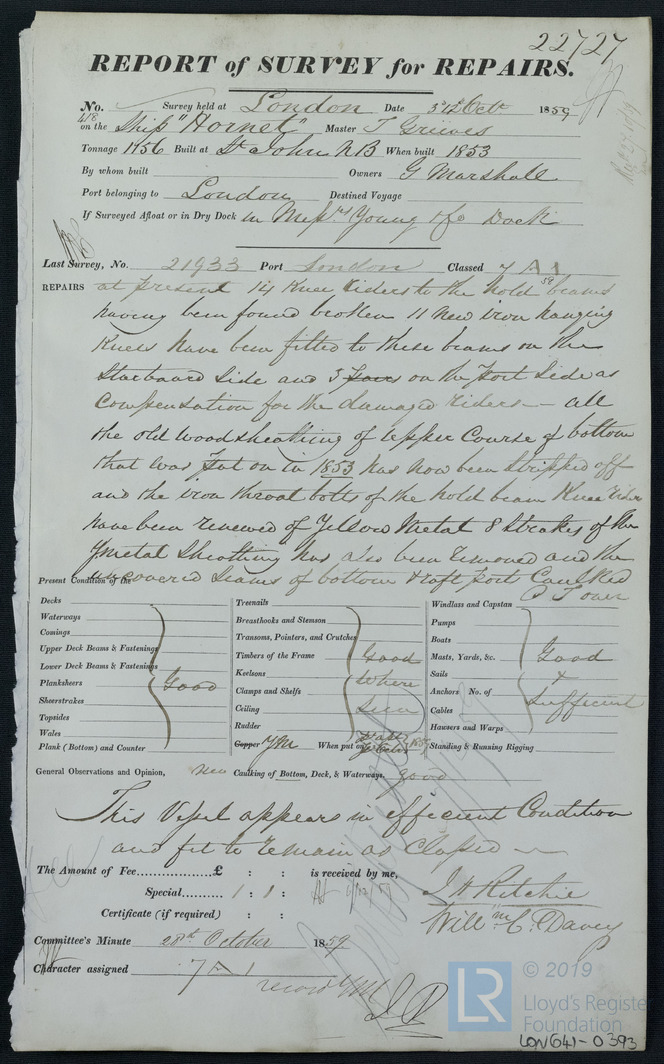 22727
REPORT of SURVEY for REPAIRS.
No. Survey held at London Date Oct 1859
418
on the Ship "Hornet" Master T Greeves
Tonnage 1156 Built at St John NB When built 1853
By whom built Owners G Marshall
Port belonging to London Destined Voyage
If Surveyed Afloat or in Dry Dock in Messrs Young & Co Dock
Last Survey, No. 21933 Port London Classed 7 A 1
REPAIRS at present 14 Knee Riders to the hold beams
having been found broken 11 new iron hanging
Knees have been fitted to these beams on the
Starboard Side and 3 on the Port Side as
Compensation for the damaged riders — all
the old wood sheathing of upper Course of bottom
that was put on in 1853 has now been stripped off
and the iron throat bolts of the hold beam Knee Riders
have been renewed of Yellow Metal 8 Strakes of the
Y metal Sheathing has also been removed and the
uncovered Seams of bottom & aft port Caulked
P T over
Present Condition of the
Decks
Waterways
Comings
Upper Deck Beams & Fastenings
Lower Deck Beams & Fastenings
Planksheers
Sheerstrakes
Topsides
Wales
Plank (Bottom) and Counter
Good
Treenails
Breasthooks and Stemson
Transoms, Pointers, and Crutches
Timbers of the Frame
Keelsons
Clamps and Shelfs
Ceiling
Rudder
Copper YM When put on
Good
Where
seen
Windlass and Capstan
Pumps
Boats
Masts, Yards, &c.
Sails
Anchors No. of
Cables
Hawsers and Warps
Standing & Running Rigging
Good
&
Sufficient
General Observations and Opinion, new Caulking of Bottom, Deck, & Waterways. good
This Vessel appears in efficient Condition
and fit to remain as Classed
The Amount of Fee £ : : is received by me,
Special 1 : 1 :
Certificate (if required) : :
J H Ritchie
Willm C. Davey
Committee's Minute 28th October 1859
Character assigned 7 A 1
record YM
LR © 2019
Lloyd's Register
Foundation
LON641-0393